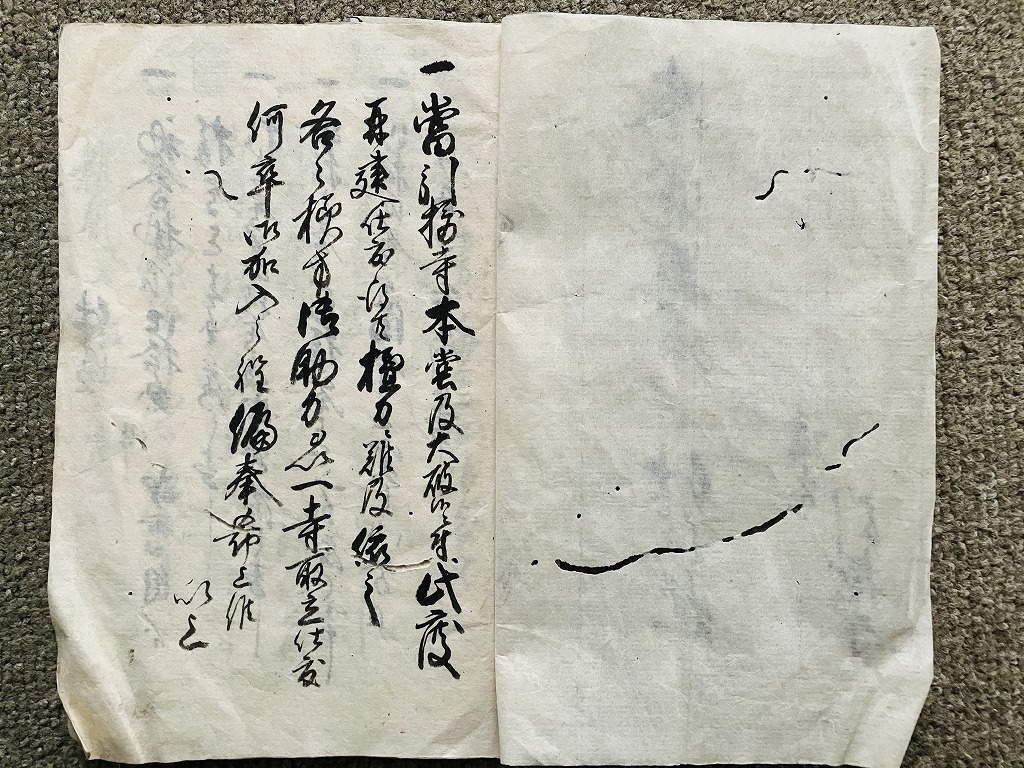 一當引揚寺本堂及大破候ニ付此度
再建仕度候得共檀力ニ難及依之
各々様方御助力を以一寺取立仕度
何卒御加入之程偏奉希上候
以上